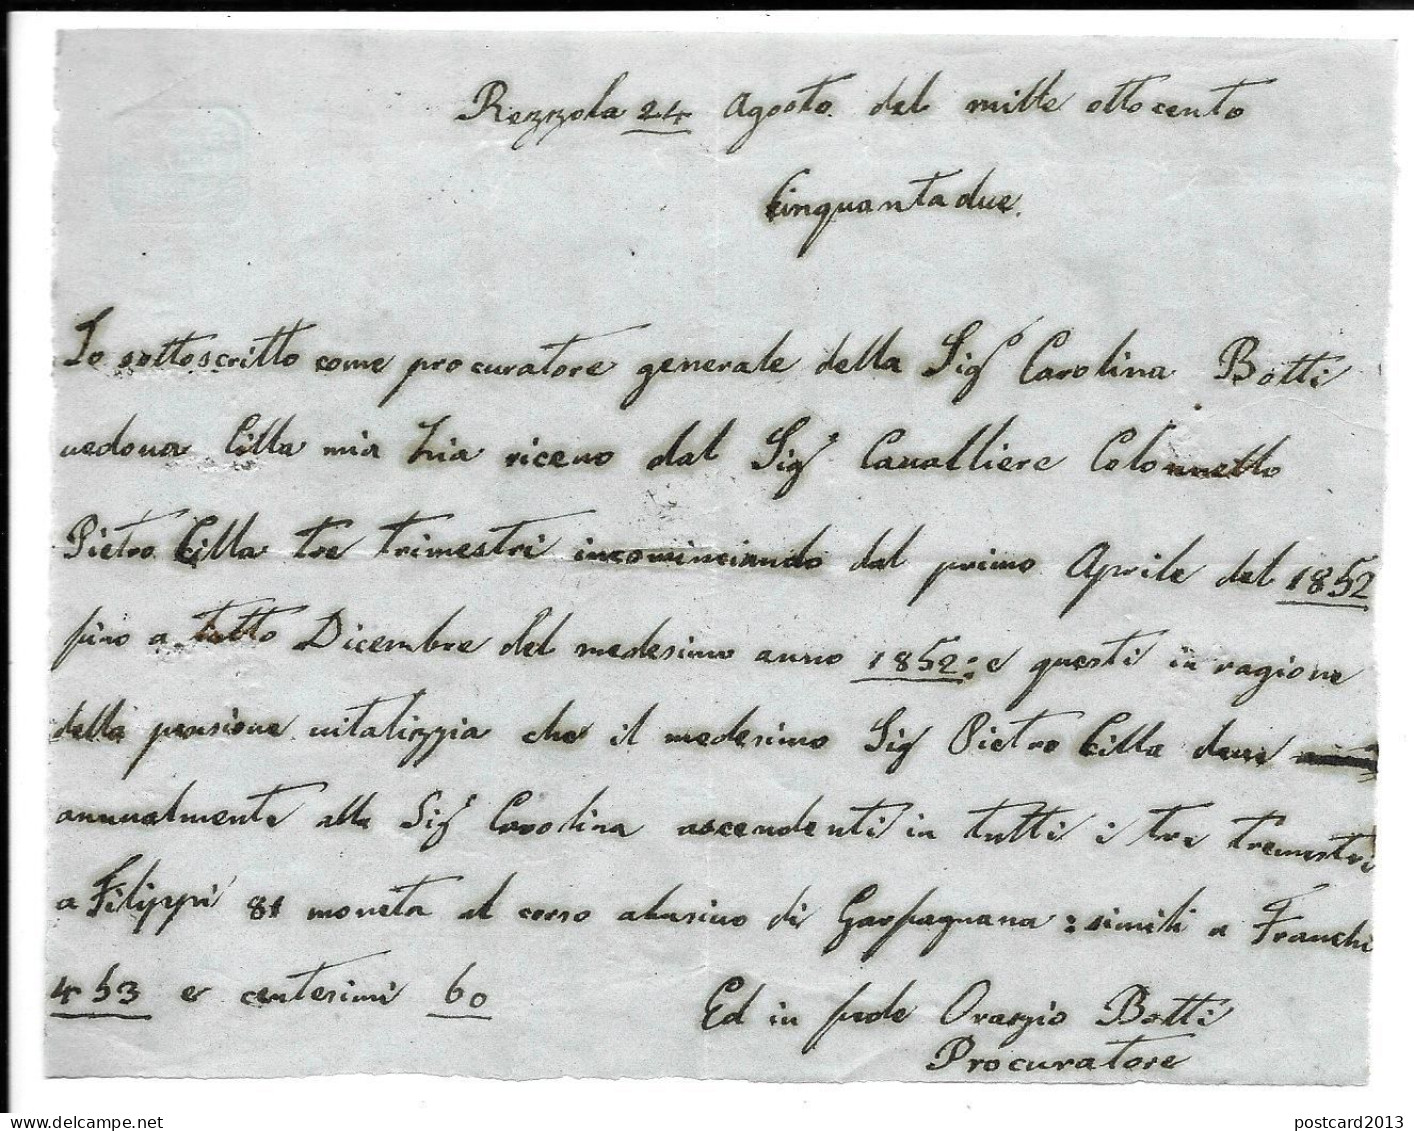 Rezzola 24 Agosto. del mille ottocento
Cinquantadue.
Io sottoscritto come procuratore generale della Sigª Carolina Botti
vedova Cilla mia Zia ricevo dal Sigʳ Cavalliere Colonnello
Pietro Cilla tre trimestri incominciando dal primo Aprile del 1852
fino a tutto Dicembre del medesimo anno 1852: e questi in ragione
della pensione vitalizzia che il medesimo Sigʳ Pietro Cilla deve
annualmente alla Sigª Carolina ascendenti in tutti i tre tremestri
a Filippi 81 moneta al corso abusivo di Garfagnana: simili a Franchi
453 e centesimi 60
Ed in fede Orazio Botti
Procuratore
delcampe.net
postcard2013